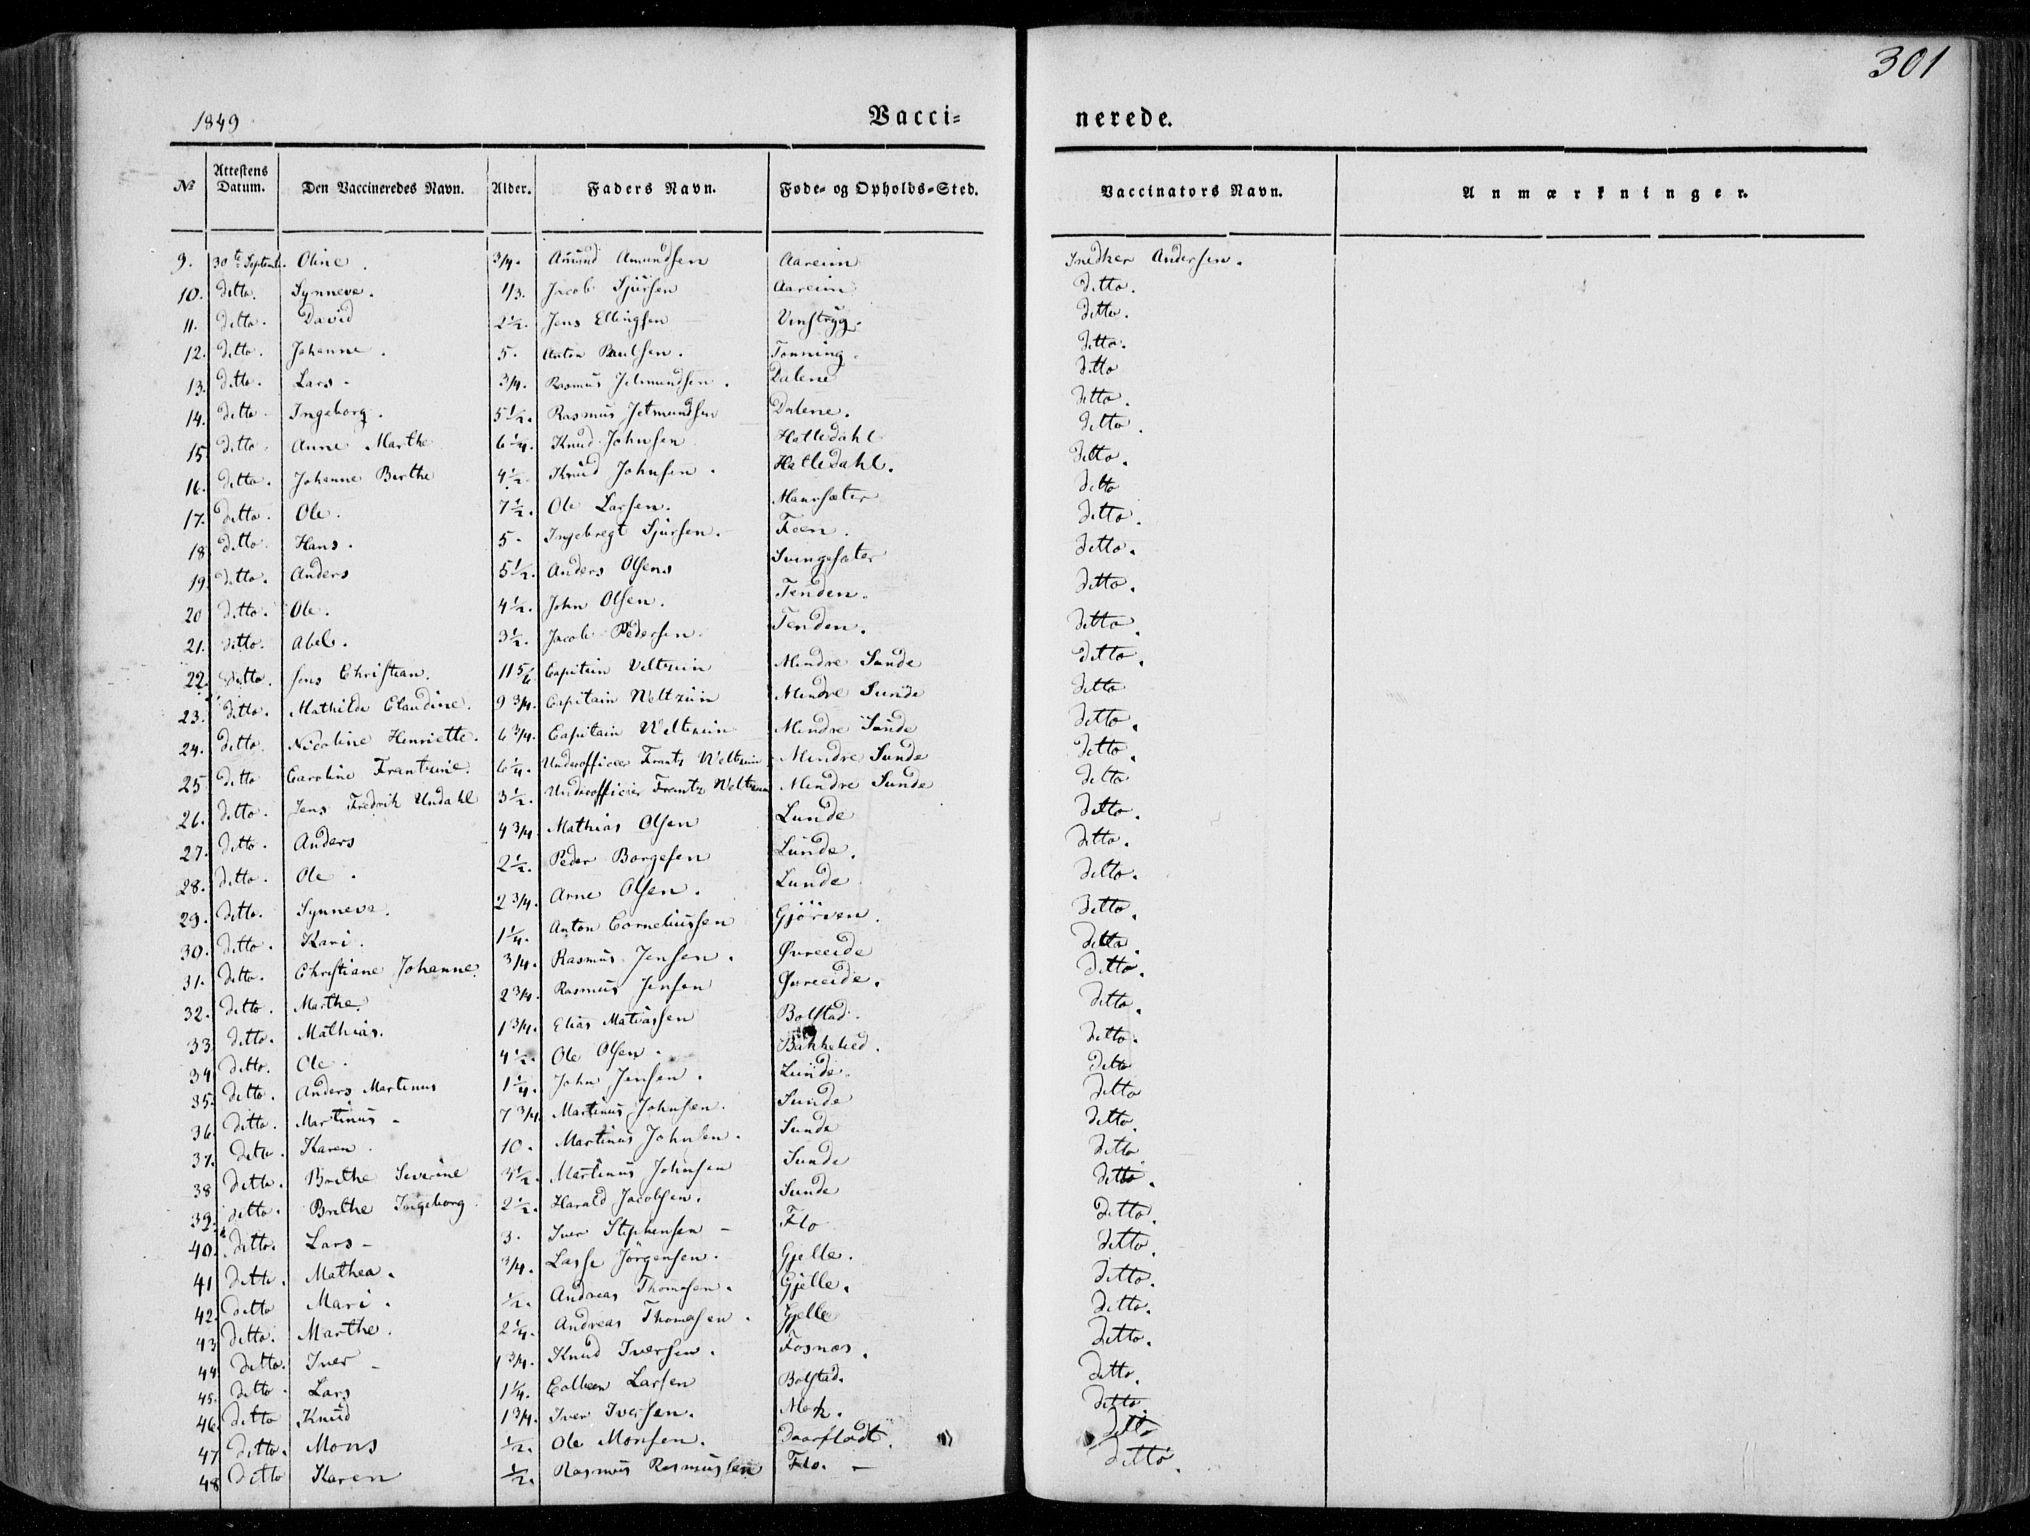 301
1849 Vacci= nerede.
No Attestens Datum. Den Vaccineredes Navn. Alder. Faders Navn. Føde- og Opholds-Sted. Vaccinators Navn. Anmærkninger.
9. 30te Septemb. Oline. 3/4. Amund Amundsen Aareim Snedker Andersen.
10. ditto. Synneve. 1/3. Jacob Sjursen Aareim ditto.
11. ditto. David 2 1/2. Jens Ellingsen Vinstryg. ditto.
12. ditto. Johanne. 5. Anton Paulsen. Tonning. ditto.
13. ditto. Lars. 3/4. Rasmus Jetmundsen. Dalene ditto
14. ditto. Ingeborg. 5 1/2. Rasmus Jetmundsen Dalene. ditto.
15 ditto. Anne Marthe 6 1/4. Knud Johnsen Hatledahl ditto.
16. ditto. Johanne Berthe 4 1/2. Knud Johnsen. Hatledahl. ditto.
17. ditto. Ole. 7 1/2. Ole Larsen. Maursæter ditto
18 ditto. Hans. 5. Ingebregt Sjursen. Foen. ditto.
19. ditto. Anders 5 1/2. Anders Olsens Svingesæter ditto.
20 ditto. Ole. 4 1/2. John Olsen. Tenden. ditto.
21. ditto. Abel. 3 1/2. Jacob Pedersen. Tenden. ditto.
22. ditto. Jens Christian. 11 5/6 Capitain Veltzuin Mindre Sunde ditto.
23. ditto. Mathilde Claudine. 9 3/4. Capitain Weltzuin Mindre Sunde ditto
24. ditto. Nicoline Henriette. 6 3/4. Capitain Weltzuin Mindre Sunde ditto.
25 ditto Caroline Frantzine. 6 1/4. Underofficeer Frantz Weltzuin Mindre Sunde ditto.
26. ditto. Jens Fredrik Undahl 3 1/2. Underofficeer Frantz Weltzuin Mindre Sunde ditto
27. ditto. Anders 4 3/4. Mathias Olsen Lunde ditto.
28. ditto. Ole. 2 1/2. Peder Borgesen Lunde. ditto.
29. ditto. Synneve. 2 3/4. Arne Olsen. Lunde ditto.
30. ditto. Kari. 1 1/4. Anton Corneliussen Gjörven. ditto.
31. ditto. Christiane Johanne. 3/4. Rasmus Jensen. Øvreeide ditto.
32. ditto. Marthe. 2 3/4. Rasmus Jensen Øvreeide. ditto.
33 ditto. Mathias. 1 3/4. Elias Matiassen Bolstad. ditto.
34 ditto. Ole. 4 1/2. Ole Olsen. Bakkelied. ditto.
35. ditto. Anders Martinus 1 1/4. John Jensen. Lunde. ditto
36. ditto. Martinus 7 3/4. Martinus Johnsen. Sunde ditto
37. ditto. Karen. 10. Martinus Johnsen. Sunde ditto.
38 ditto. Brethe Severine 4 1/2. Martinus Johnsen Sunde ditto
39. ditto. Brethe Ingeborg 2 1/2. Harald Jacobsen. Sunde ditto.
40. ditto. Lars 3. Iver Stephensen Flo ditto.
41 ditto. Mathea. 3/4. Lasse Jörgensen. Gjelle. ditto.
42. ditto Mari. 1/2. Andreas Thomesen. Gjelle. ditto.
43 ditto. Marthe. 2 1/4. Andreas Thomesen. Gjelle ditto.
44 ditto. Iver 1 3/4. Knud Iversen. Fosnæs. ditto.
45. ditto. Lars 1 1/4. Colbeen Larsen Bolstad. ditto.
46. ditto Knud 1 3/4. Iver Iversen. Mork. ditto
47 ditto. Mons 1/2. Ole Monsen. ditto
48 ditto Karen 1/2. Rasmus Rasmussen Flo. ditto.